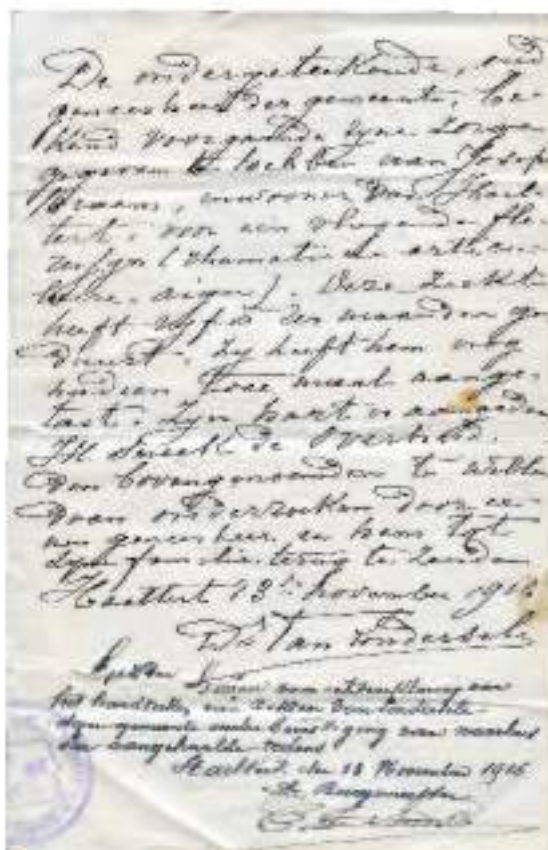 De ondergeteekende, oud
geneesheer der gemeente, be-
kend voorgaande zyne zorgen
gegeven te hebben aan Joseph
Braems, inwoner van Haal-
tert, voor een vliegende fle-
rufijn (rhumatisme articu-
laire aigu). Deze ziekte
heeft vyf à zes maanden ge-
duurt. Zy heeft hem nog
nadien twee maal aange-
tast. Zyn hart is aangedaan
Ik smeek de Overheid
den bovengenoemden te willen
doen onderzoeken door ee-
nen geneesheer en hem tot
zyne familie terug te zenden
Haeltert 13n november 1916
Dr Van Vondersele
Gezien
het handteeken van
dezer gemeente onder bevestiging van waarheid
der aangehaalde
Haeltert den 18 November 1916
De Burgemeester